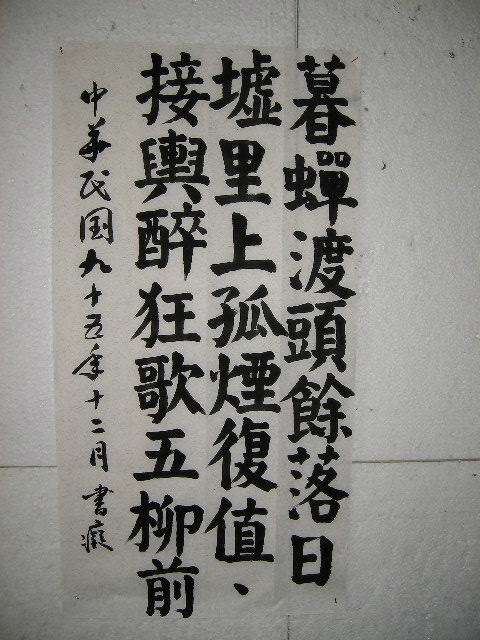 暮蟬渡頭餘落日
墟里上孤煙復值、
接輿醉狂歌五柳前
中華民国九十五年十二月書癡